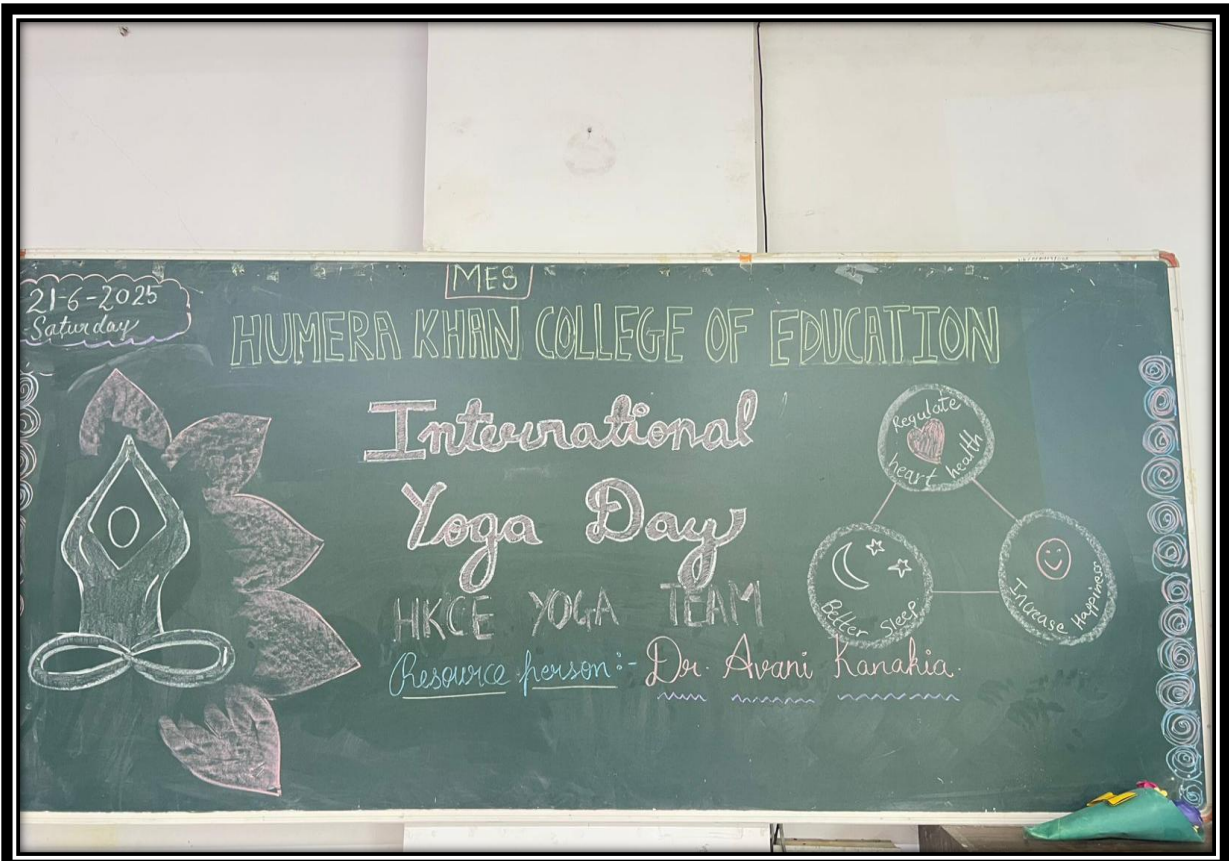 MES
21-6-2025
Saturday
HUMERA KHAN COLLEGE OF EDUCATION
International
Yoga Day
HKCE YOGA TEAM
Resource person:- Dr. Avani Kanakia.
Regulate
heart health
Better Sleep
Increase Happiness